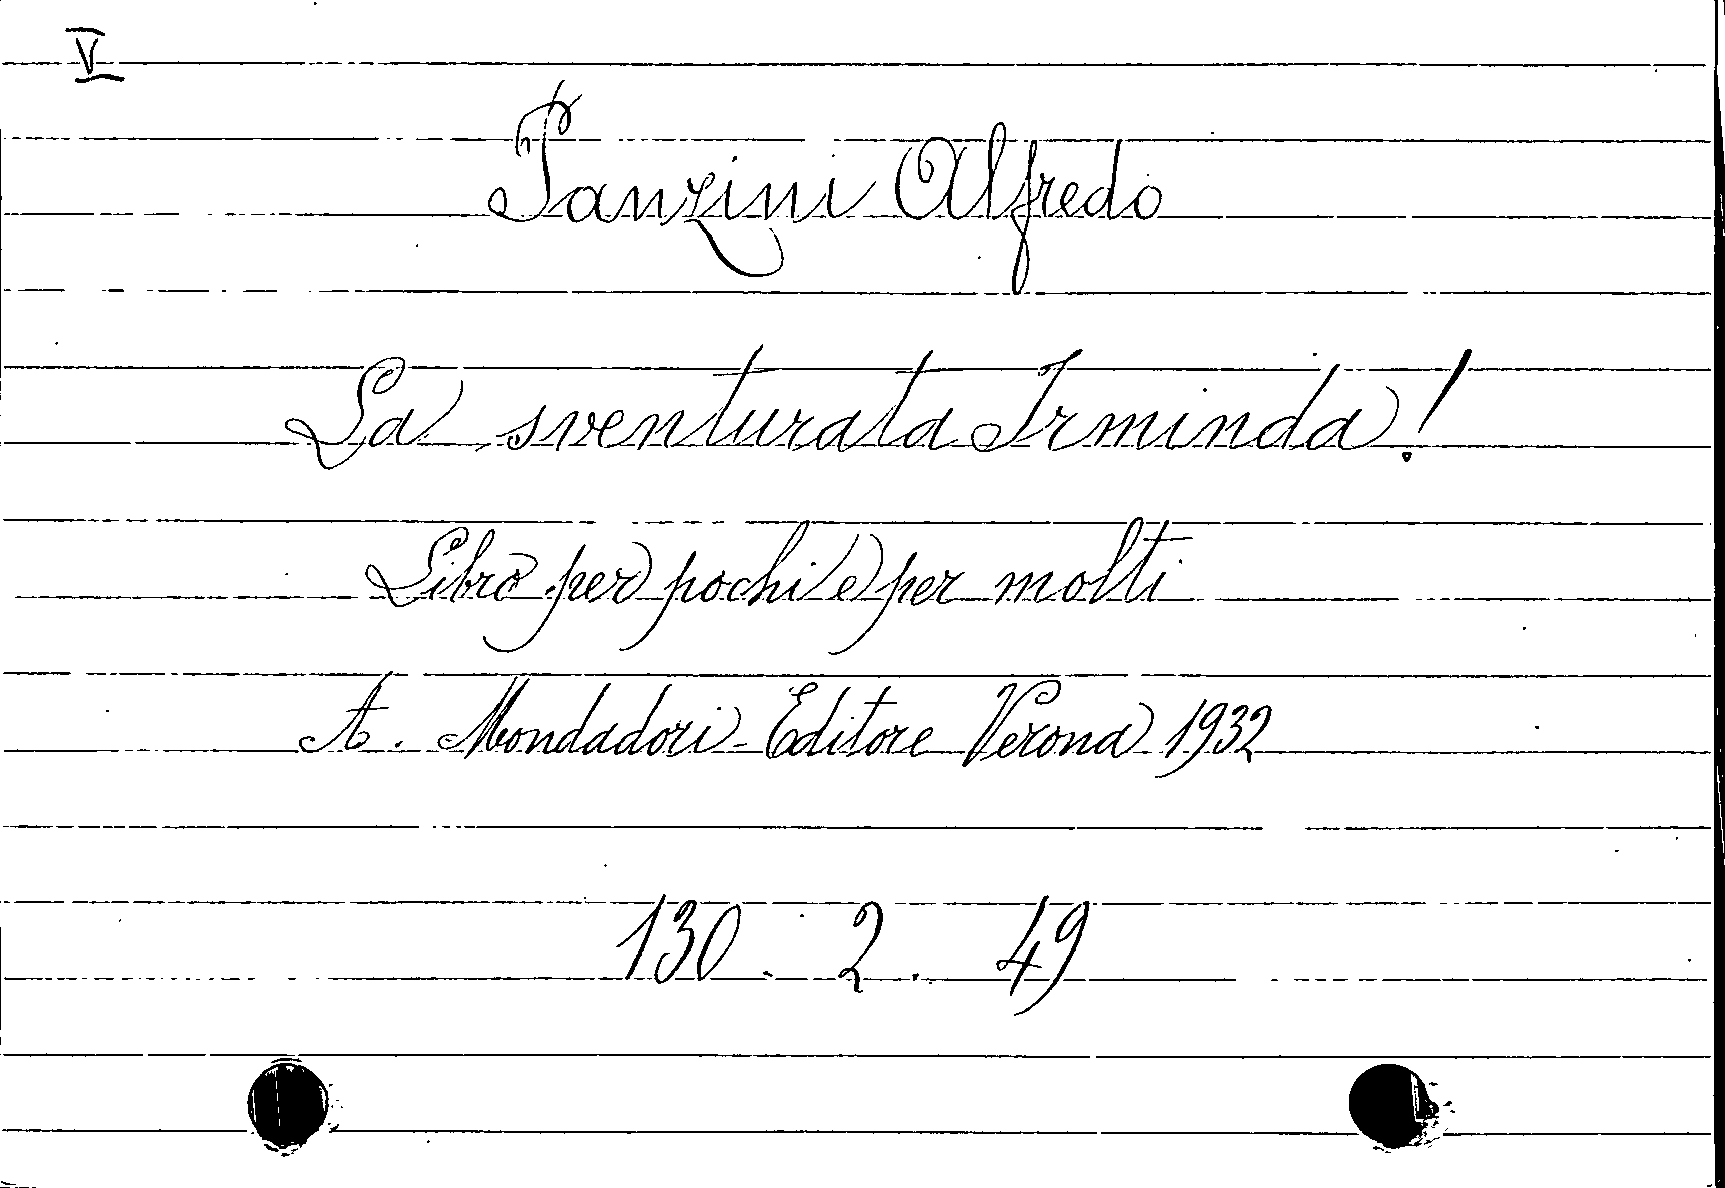 V
Panzini Alfredo
La sventurata Irminda!
Libro per pochi e per molti
A. Mondadori - Editore Verona 1932
130. 2. 49